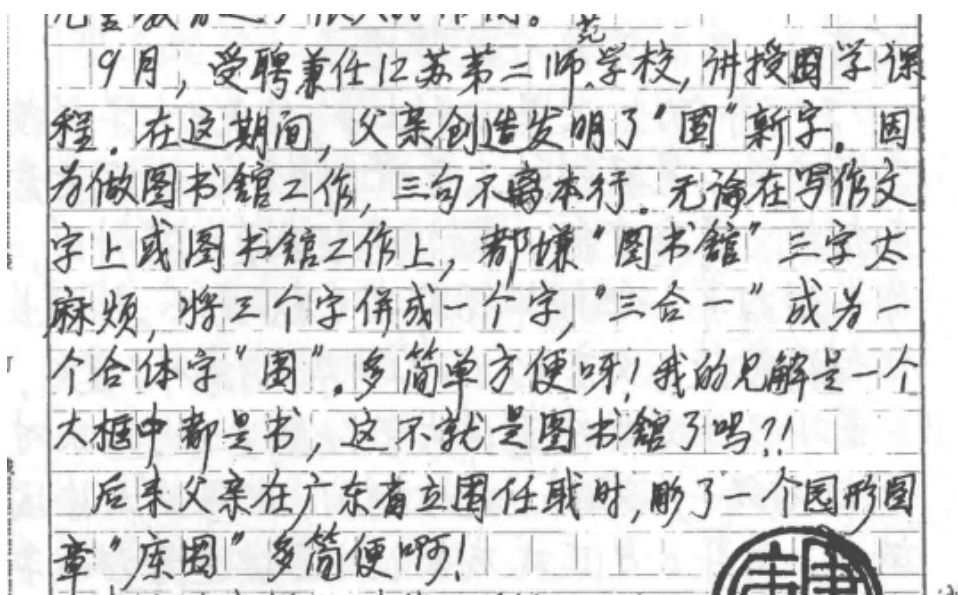 9月，受聘兼任江苏第二师范学校，讲授圕学课
程。在这期间，父亲创造发明了“圕”新字。因
为做图书舘工作，三句不离本行。无论在写作文
字上或图书舘工作上，都嫌“图书舘”三字太
麻烦，将三个字併成一个字，“三合一”成为一
个合体字“圕”。多简单方便呀！我的见解是一个
大框中都是书，这不就是图书舘了吗？！
后来父亲在广东省立圕任职时，彫了一个园形图
章“库圕”多简便啊！